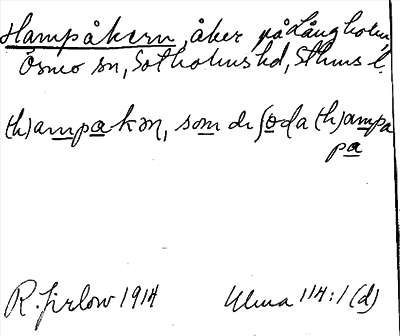 Hampåkern, åker på Långholm,
Ösmo sn, Sotholms hd, Sthms l.
(h)ampakən, som di soda (h)ampa
pa
R. Jirlow 1914 Ulma 114:1 (d)